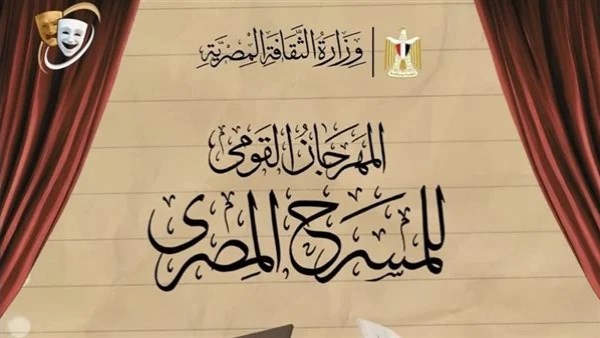 وزارة الثقافة المصرية
المهرجان القومى
للمسرح المصرى